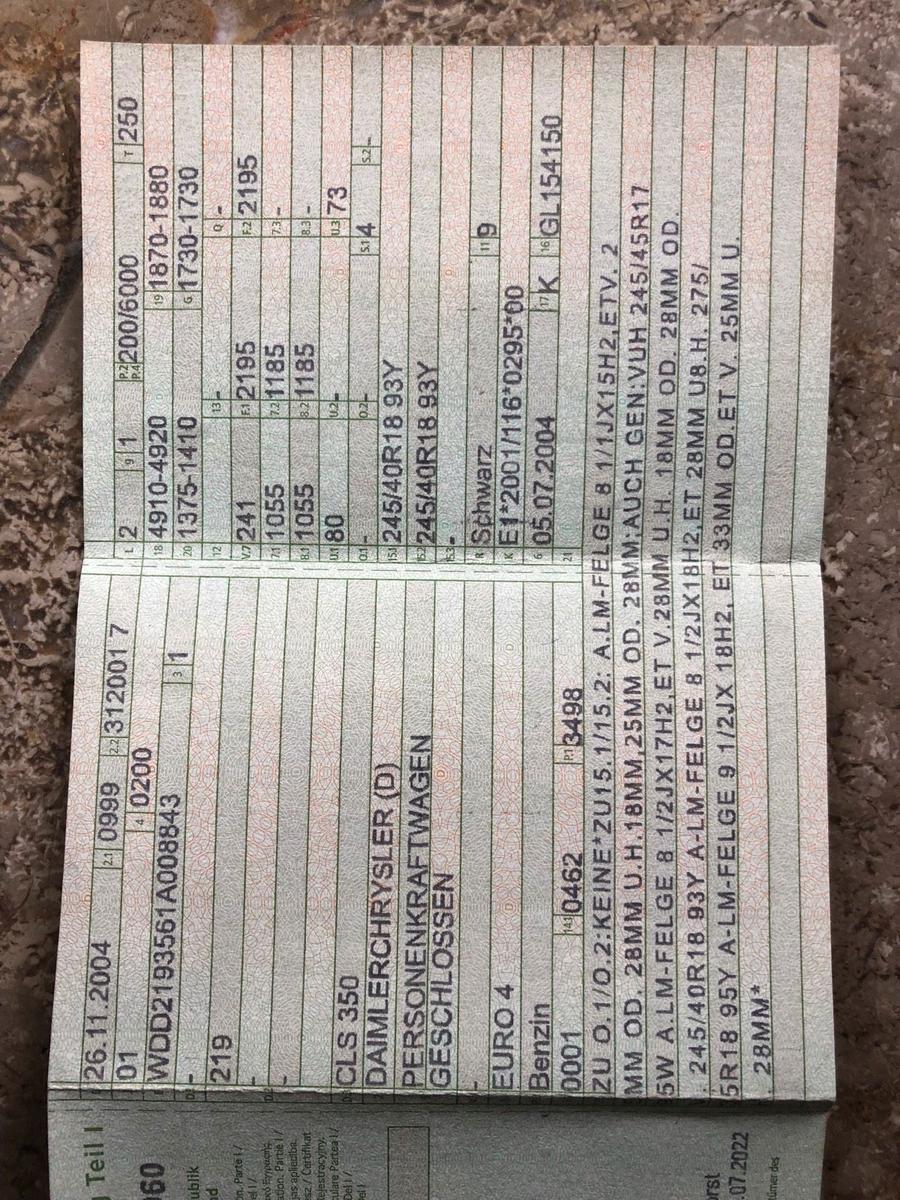 Teil I
960
ublik
d
07.2022
26.11.2004 2.1 0999 2.2 312001 7
01 4 0200
WDD2193561A008843 3 1
-
219
-
-
CLS 350
DAIMLERCHRYSLER (D)
PERSONENKRAFTWAGEN
GESCHLOSSEN
-
EURO 4
Benzin
0001 14.1 0462 P.1 3498
L 2 9 1 P.2 P.4 200/6000 T 250
18 4910-4920 19 1870-1880
20 1375-1410 G 1730-1730
12 13 - Q -
V.7 241 F.1 2195 F.2 2195
7.1 1055 7.2 1185 7.3 -
8.1 1055 8.2 1185 8.3 -
U.1 80 U.2 - U.3 73
O.1 - O.2 - S.1 4 S.2 -
15.1 245/40R18 93Y
15.2 245/40R18 93Y
15.3 -
R Schwarz 11 9
K E1*2001/116*0295*00
6 05.07.2004 17 K 16 GL154150
21
ZU O.1/O.2:KEINE*ZU15.1/15.2: A.LM-FELGE 8 1/1JX15H2,ETV. 2
MM OD. 28MM U.H.18MM,25MM OD. 28MM;AUCH GEN:VUH 245/45R17
5W A.LM-FELGE 8 1/2JX17H2,ET V.28MM U.H. 18MM OD. 28MM OD.
245/40R18 93Y A-LM-FELGE 8 1/2JX18H2,ET 28MM U8.H. 275/
5R18 95Y A-LM-FELGE 9 1/2JX 18H2, ET 33MM OD.ET V. 25MM U.
28MM*